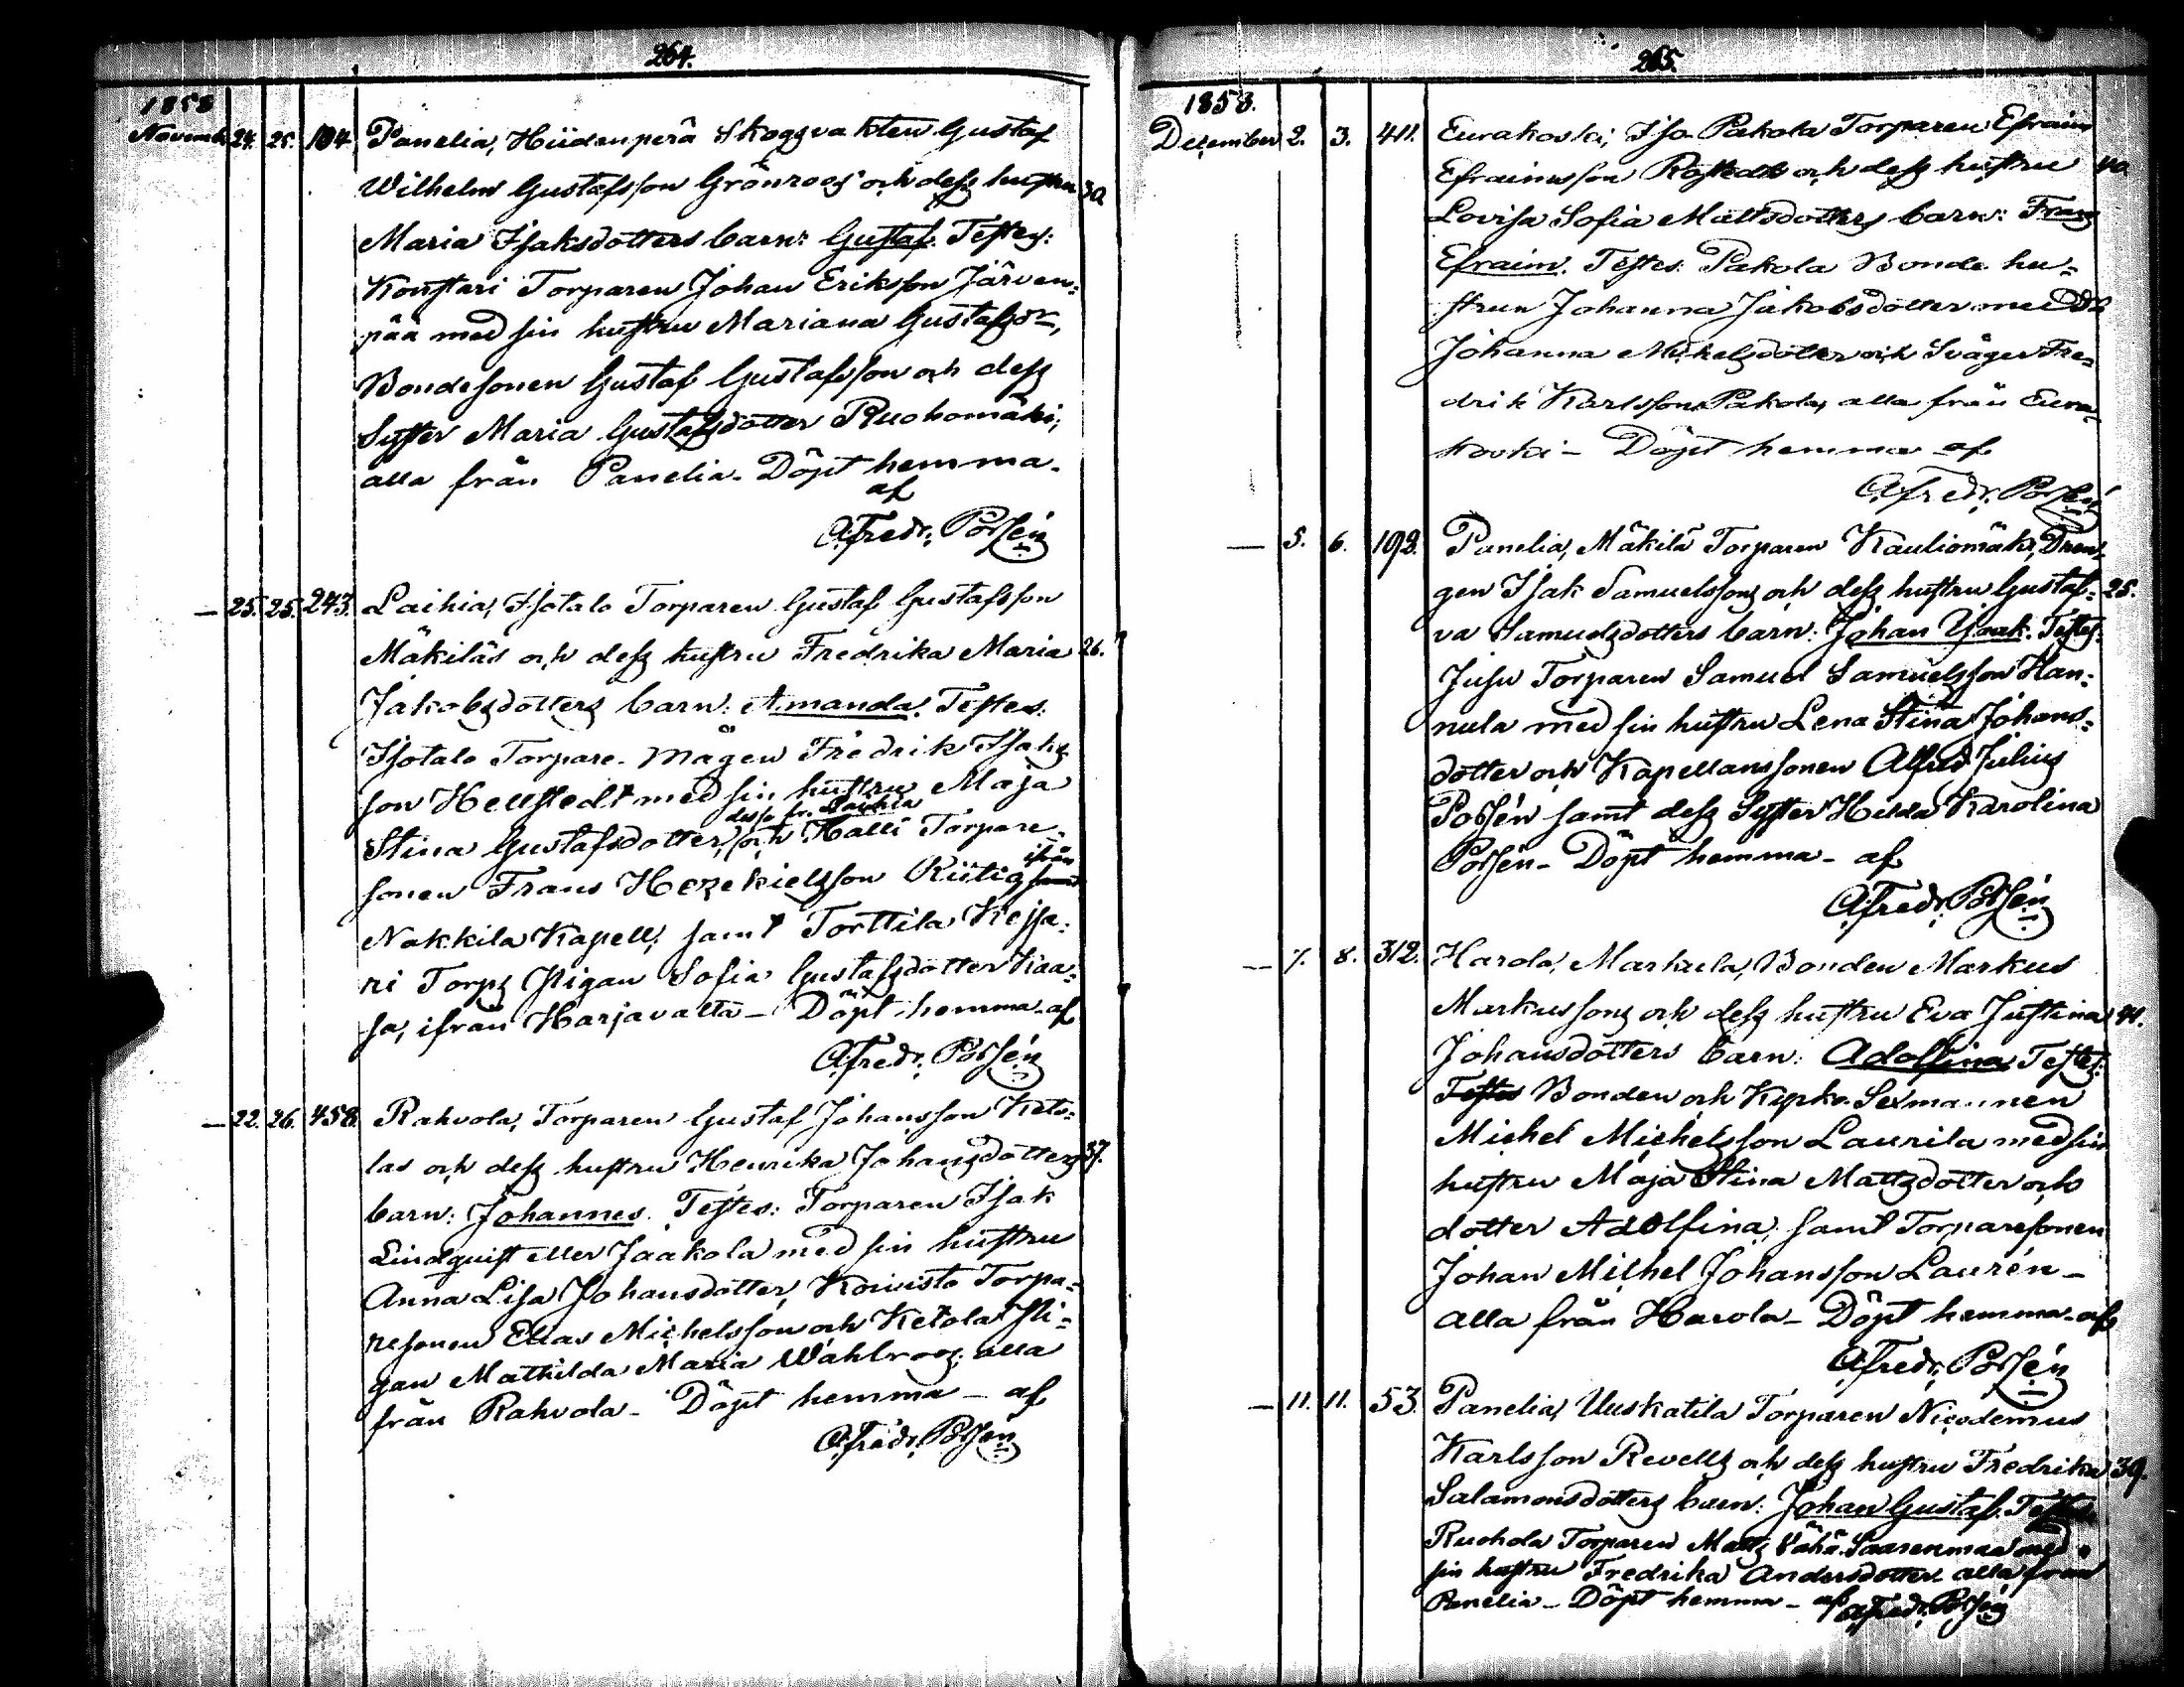 264.
1858
November 24. 25. 104. Panelia, Hiidenperä Skoggvakten Gustaf
Wilhelm Gustafsson Grönroos och dess hustru 30.
Maria Isaksdotters barn: Gustaf. Testes:
Konstari Torparen Johan Eriksson Järven=
pää med sin hustru Mariana Gustafsdr,
Bondesonen Gustaf Gustafsson och dess
Syster Maria Gustafsdotter Ruohomäki,
alla från Panelia. Döpt hemma.
af
A. Fredr. Polsén
— 25. 25. 243. Laihia, Isotalo Torparen Gustaf Gustafsson
Mäkiläs och dess hustru Fredrika Maria 26.
Jakobsdotters barn: Amanda. Testes:
Isotalo Torpare-Mågen Fredrik Isaks
son Hellstedt med sin hustru Maja
desse fr. Laihia
Stina Gustafsdotter, och Halli Torpare-
ifrån
sonen Frans Hezekielsson Riitig
Nakkila Kapell, samt Torttila Kejsa=
ri Torps Pigan Sofia Gustafsdotter Kaa=
sa, ifrån Harjavalta — Döpt hemma af
A. Fredr. Polsén
— 22. 26. 458. Rahvola, Torparen Gustaf Johansson Keto=
las och dess hustru Henrika Johansdotters 37.
barn: Johannes. Testes: Torparen Isak
Lindquist eller Jaakola med sin hustru
Anna Lisa Johansdotter, Koivisto Torpa=
resonen Elias Michelsson och Ketola Pi=
gan Mathilda Maria Wahlroos, alla
från Rahvola. Döpt hemma — af
A. Fredr. Polsén
265.
1858.
December 2. 3. 411. Eurakoski, Iso Pakola Torparen Efraim
Efraimsson Rostedt och dess hustru 40.
Lovisa Sofia Mattsdotters barn: Frans
Efraim. Testes: Pakola Bonde hu=
strun Johanna Jakobsdotter med
Johanna Mickelsdotter och Svåger Fre=
drik Karlsson Pakola, alla från Eura=
koski — Döpt hemma af
A. Fredr. Polsén
— 5. 6. 192. Panelia, Mäkilä Torparen Kauliomäki, Dren=
gen Isak Samuelssons och dess hustru Gustaf= 25.
va Samuelsdotters barn: Johan Isaak. Testes:
Jusu Torparen Samuel Samuelsson Han=
nula med sin hustru Lena Stina Johans=
dotter och Kapellanssonen Alfred Julius
Polsén samt dess Syster Hilda Karolina
Polsén — Döpt hemma — af
A. Fredr. Polsén
— 7. 8. 312. Harola, Markula, Bonden Markus
Markussons och dess hustru Eva Justina 41.
Johansdotters barn: Adolfina. Testes:
Testes Bonden och Kyrko-Sexmannen
Michel Michelsson Laurila med sin
hustru Maja Stina Mattsdotter och
dotter Adolfina, samt Torparesonen
Johan Michel Johansson Laurén —
alla från Harola — Döpt hemma — af
A. Fredr. Polsén
— 11. 11. 53. Panelia, Uuskatila Torparen Nicodemus
Karlsson Revells och dess hustru Fredrika 39.
Salamonsdotters barn: Johan Gustaf. Testes:
Ruohola Torparen Matts Vähä-Saarenmaa med
sin hustru Fredrika Andersdotter alla från
Panelia — Döpt hemma — af A. Fredr. Polsén